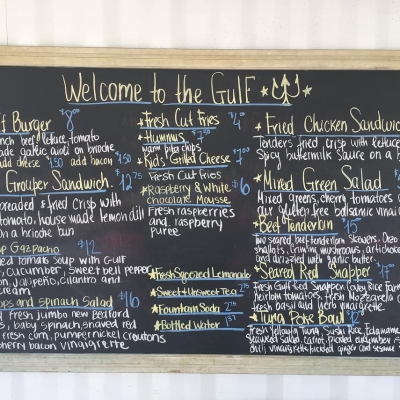 Welcome to the Gulf
f Burger 8
nch beef, lettuce, tomato
ade garlic aioli on brioche
add cheese .50 add bacon 1.50
Grouper Sandwich $12.75
breaded & fried crisp with
tomato, house made lemon dill
on a brioche bun
p Gazpacho $12
ed tomato soup with Gulf
, cucumber, sweet bell pepper
n, jalapeño, cilantro and
cream
ops and spinach salad $16
d fresh jumbo new Bedford
s, baby spinach, shaved red
fresh corn, pumpernickel croutons
herry bacon vinaigrette
Fresh Cut Fries $4
Hummus
warm pita chips
Kids' Grilled Cheese $7.00
Fresh Cut Fries
Raspberry & White $6
chocolate Mousse
Fresh raspberries
and raspberry
puree
Fresh Squeezed Lemonade
Sweet & Unsweet Tea
Fountain Soda
Bottled Water
Fried Chicken Sandwich
Tenders fried crisp with lettuce
Spicy buttermilk sauce on a b
Mixed Green Salad
Mixed greens, cherry tomatoes
our gluten free balsamic vinai
Beef Tenderloin $15
Two seared beef tenderloin skewers, orzo
and drizzled with garlic butter
Seared Red Snapper
Fresh Gulf Red Snapper
heirloom tomatoes, fresh mozzarella
fresh basil and herb vinaigrette
Tuna Poke Bowl
Fresh Yellowfin Tuna, Sushi Rice, Edamame
seaweed salad, carrot, pickled cucumber
chili vinaigrette, pickled ginger and sesame